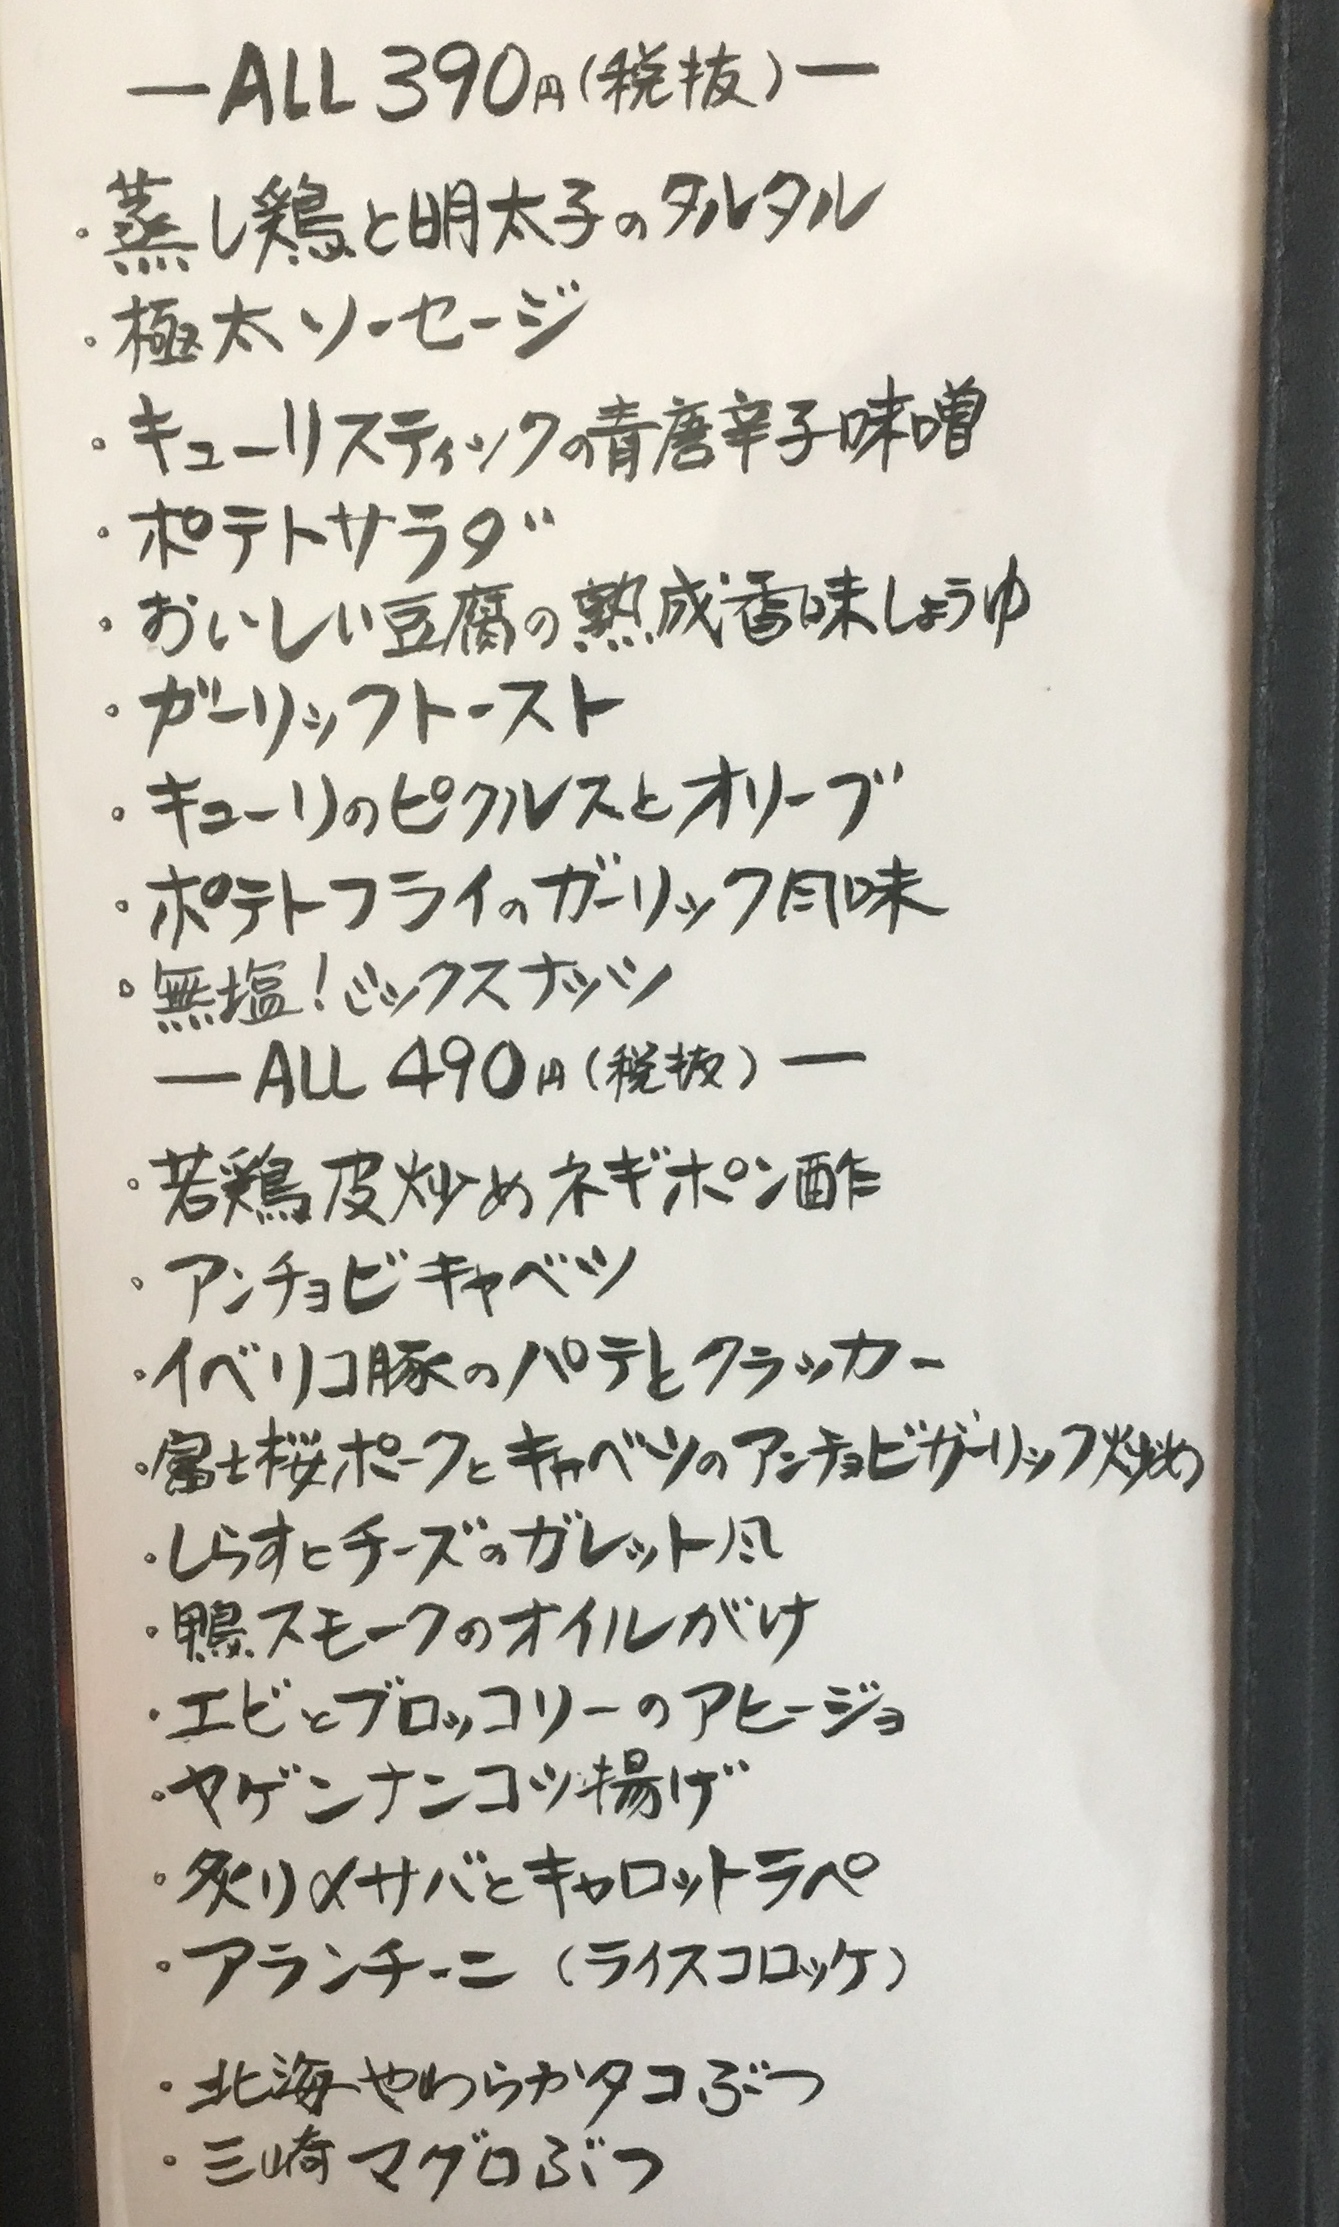 —ALL 390円(税抜)—
・蒸し鶏と明太子のタルタル
・極太ソーセージ
・キューリスティックの青唐辛子味噌
・ポテトサラダ
・おいしい豆腐の熟成香味しょうゆ
・ガーリックトースト
・キューリのピクルスとオリーブ
・ポテトフライのガーリック風味
・無塩!ミックスナッツ
—ALL 490円(税抜)—
・若鶏皮炒めネギポン酢
・アンチョビキャベツ
・イベリコ豚のパテとクラッカー
・富士桜ポークとキャベツのアンチョビガーリック炒め
・しらすとチーズのガレット風
・鴨スモークのオイルがけ
・エビとブロッコリーのアヒージョ
・ヤゲンナンコツ揚げ
・炙り〆サバとキャロットラペ
・アランチーニ(ライスコロッケ)
・北海やわらかタコぶつ
・三崎マグロぶつ